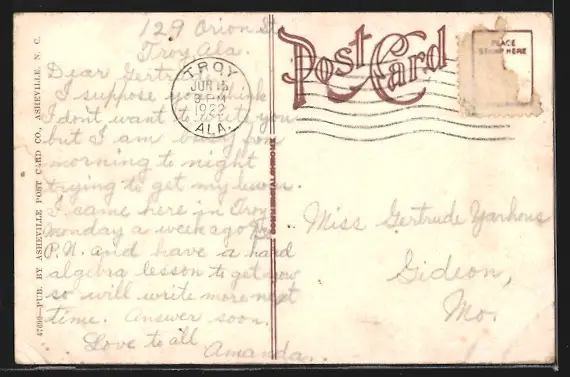 129 Orion St
Troy, Ala.
Dear Gertrude
I suppose you think
I don't want to write you
but I am busy from
morning to night
trying to get my lesson.
I came here in Troy
monday a week ago
P.N. and have a hard
algebra lesson to get now
so will write more next
time. Answer soon.
Love to all
Amanda.
TROY
JUN 15
8 PM
1922
ALA.
Post Card
PLACE
STAMP HERE
CORRESPONDENCE
Miss Gertrude
Gideon,
Mo.
47699—PUB. BY ASHEVILLE POST CARD CO., ASHEVILLE, N. C.